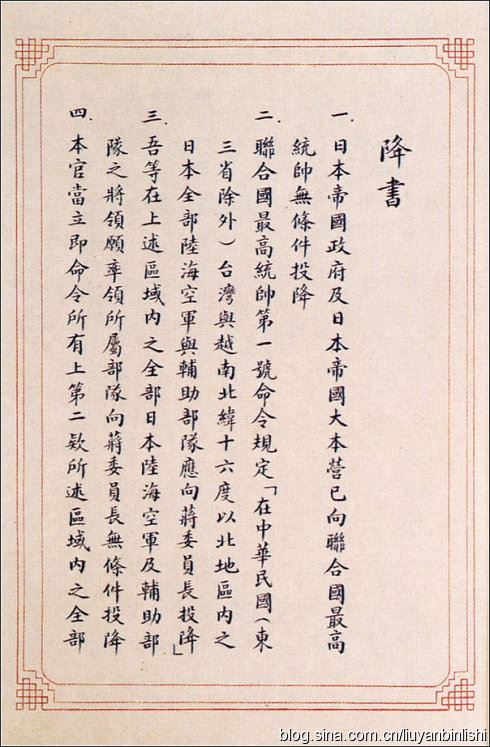 降書
一．日本帝國政府及日本帝國大本營已向聯合國最高
統帥無條件投降
二．聯合國最高統帥第一號命令規定「在中華民國（東
三省除外）台灣與越南北緯十六度以北地區內之
日本全部陸海空軍與輔助部隊應向蔣委員長投降」
三．吾等在上述區域內之全部日本陸海空軍及輔助部
隊之將領願率領所屬部隊向蔣委員長無條件投降
四．本官當立即命令所有上第二欵所述區域內之全部
blog.sina.com.cn/liuyanbinlishi